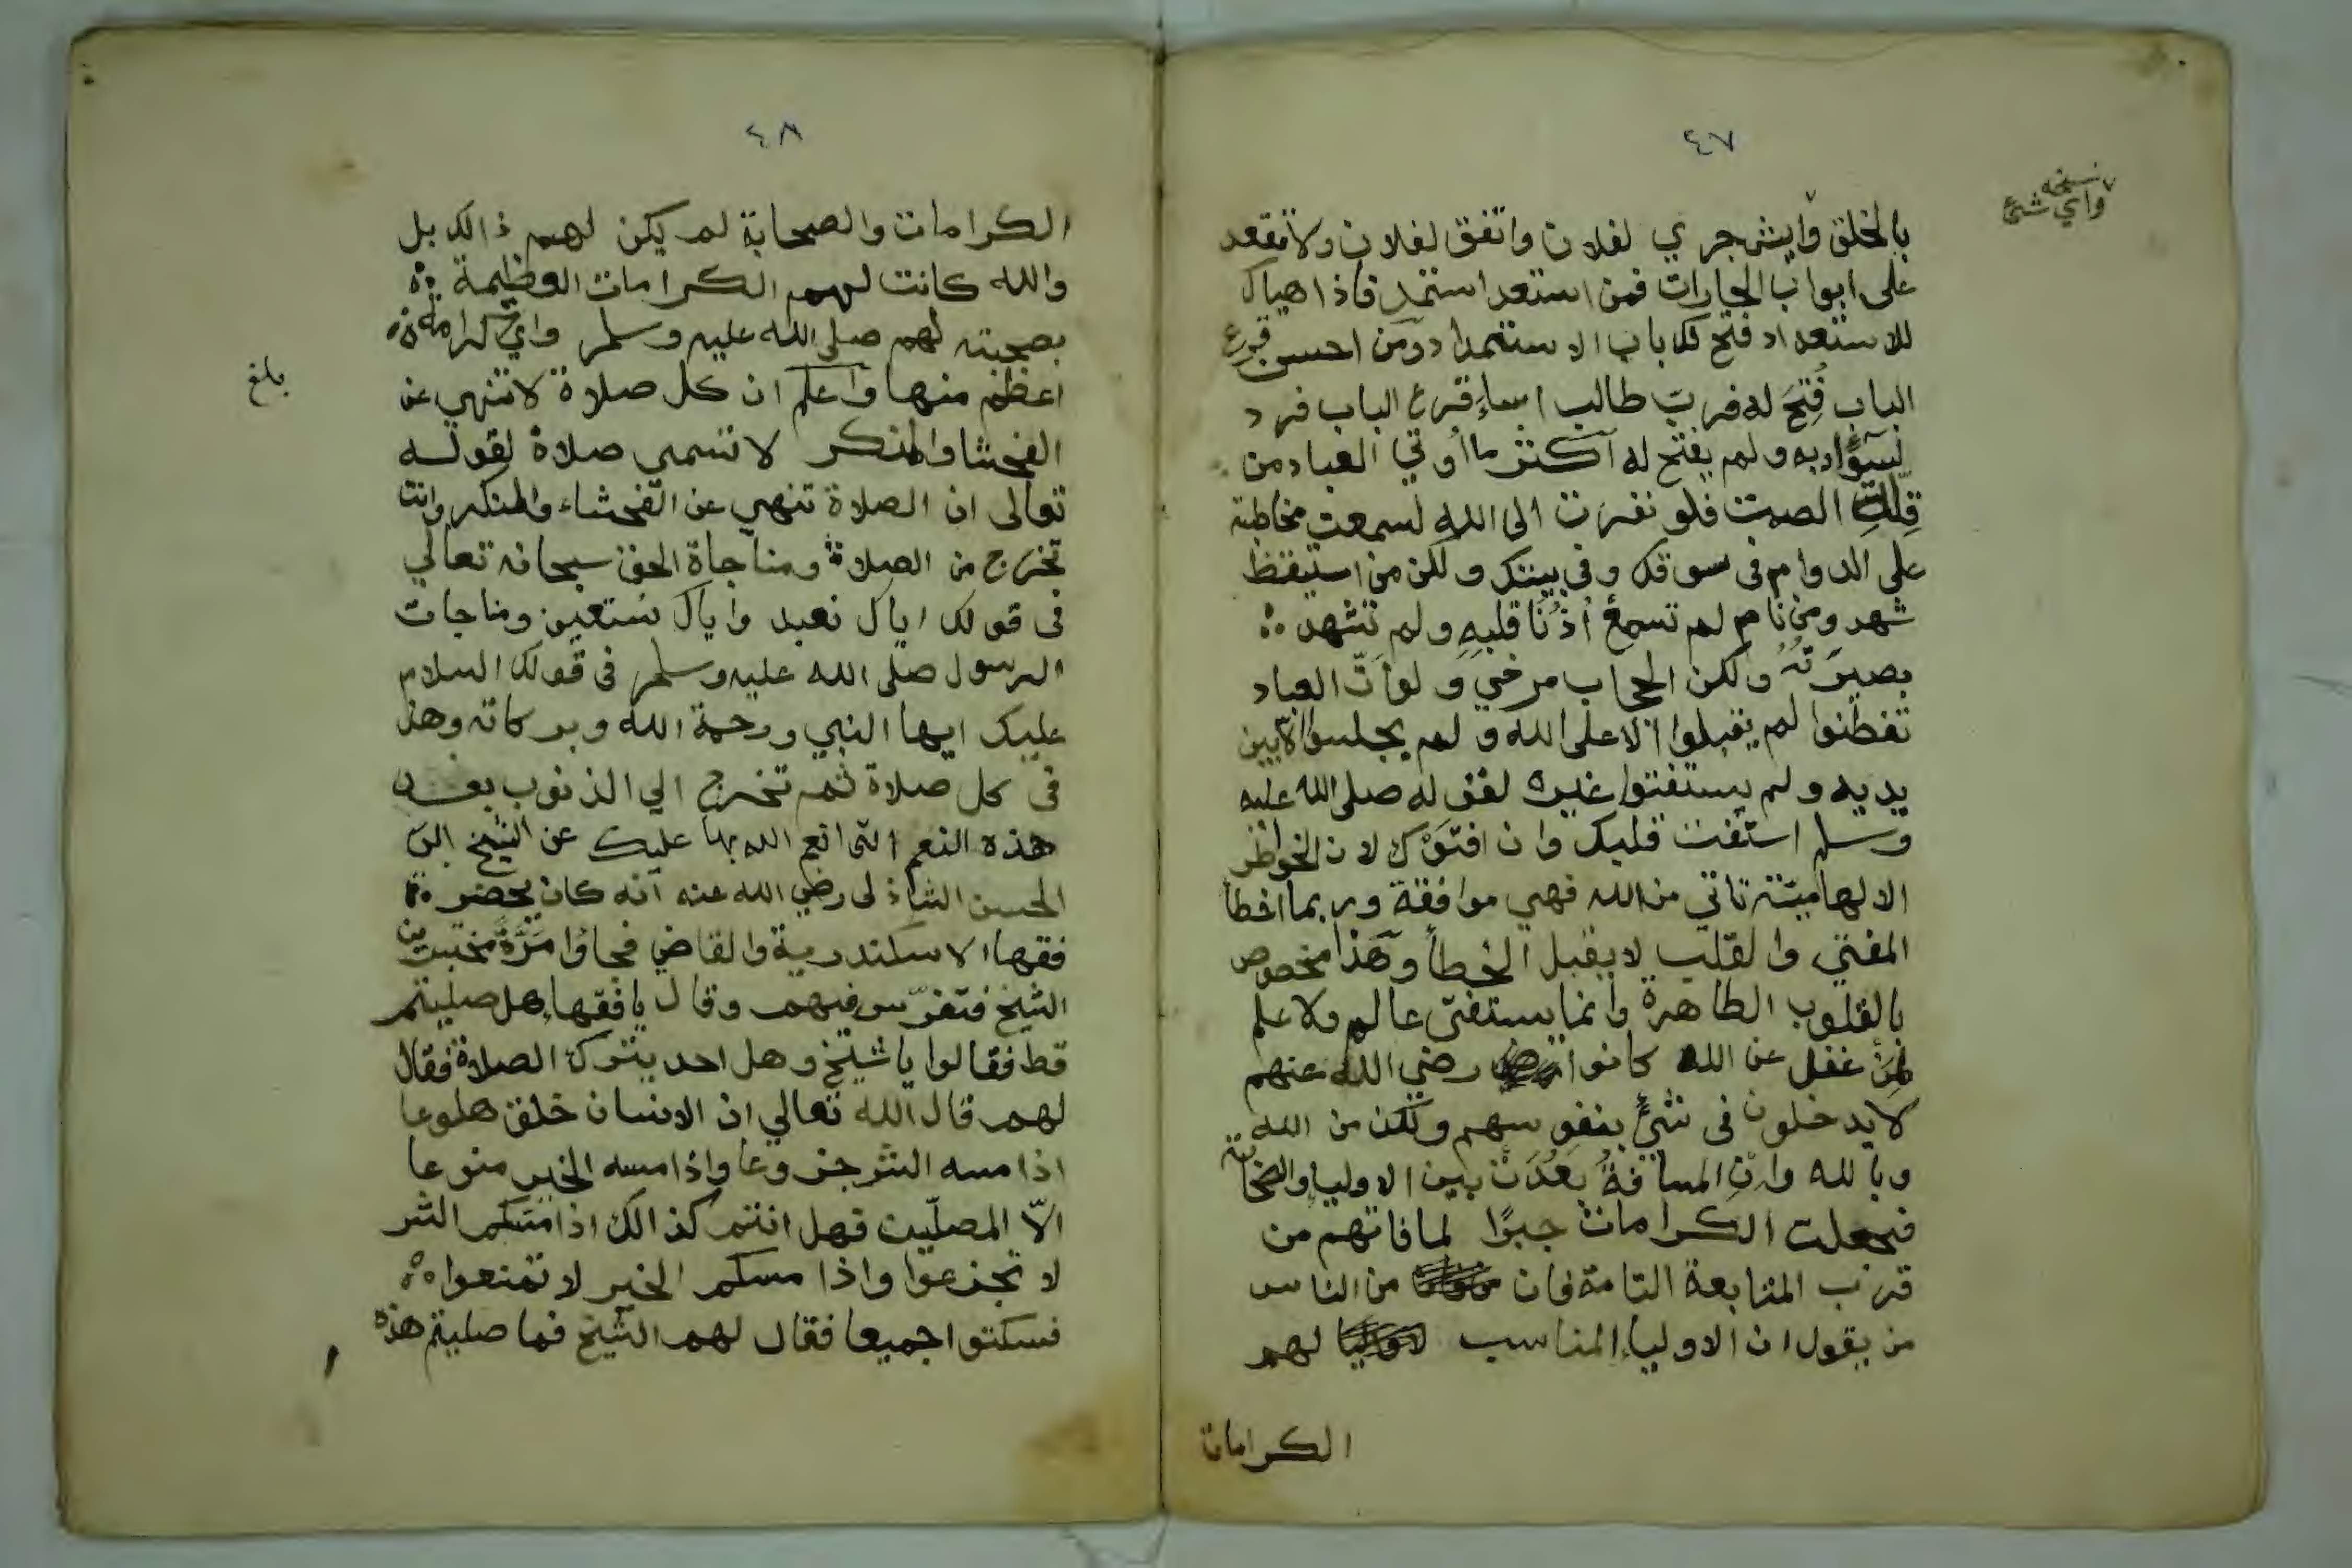 ٤٧
نسخه
واي شئ
بالخلق وايش جري لفلان واتفق لفلان ولا تقعد
على ابواب الحارات فمن استعد استمد فاذا هياك
للاستعداد فتح لك باب الاستمداد ومن احسن قرع
الباب فُتِحَ له فربّ طالب اساء قرع الباب فرد
لسوء ادبه ولم يفتح له اكثر ما أوتي العباد من
قِلّة الصمت فلو تقربت الى الله لسمعت مخاطبته
على الدوام فى سوقك وفى بيتك ولكن من استيقظ
شهد ومن نام لم تسمع أُذُنا قلبهِ ولم تشهد
بصيرَتُهُ ولكن الحجاب مرخي ولو انّ العباد
تفطنوا لم يقبلوا الا على الله ولم يجلسوا الا بين
يديه ولم يستفتوا غيره لقوله صلى الله عليه
وسلم استفت قلبك وان افتوك لان الخواطر
الالهاميّة تاتي من الله فهي موافقة وربما اخطا
المفتي والقلب لا يقبل الخطأ وهذا مخصوص
بالقلوب الطاهرة وانما يستفتى عالم ولا علم
لِمَنْ غفل عن الله كانوا رضي الله عنهم
لا يدخلون فى شيءٍ بنفوسهم ولكن من الله
وبالله وان المسافةُ بَعُدَتْ بين الاولياء والصحابة
فجعلت الكرامات جبرًا لما فاتهم من
قرب المتابعة التامة فان من الناس
من يقول ان الاولياء المناسب لهم
الكرامات
٤٨
الكرامات والصحابة لم يكن لهم ذالك بل
والله كانت لهم الكرامات العظيمة
بصحبته لهم صلى الله عليه وسلم واي كرامة
اعظم منها واعلم ان كل صلاة لا تنهي عن
الفحشا والمنكر لا تسمى صلاة لقوله
تعالى ان الصلاة تنهي عن الفحشاء والمنكر وانت
تخرج من الصلاة ومناجاة الحق سبحانه تعالي
فى قولك اياك نعبد واياك نستعين ومناجات
الرسول صلى الله عليه وسلم فى قولك السلام
عليك ايها النبي ورحمة الله وبركاته وهذ
فى كل صلاة ثم تخرج الي الذنوب بعد
هذه النعم التى انعم الله بها عليك عن الشيخ ابي
الحسن الشاذلى رضي الله عنه انه كان يحضر
فقها الاسكندرية والقاضي فجاؤا مَرَّةً مختبرين
الشيخ فتفرّس فيهم وقال يا فقهاء هل صليتم
قط فقالوا يا شيخ وهل احد يترك الصلاة فقال
لهم قال الله تعالي ان الانسان خلق هلوعا
اذا مسه الشر جزوعا واذا مسه الخير منوعا
الاّ المصلّين فهل انتم كذالك اذا مسّكم الشر
لا تجزعوا واذا مسكم الخير لا تمنعوا
فسكتوا جميعا فقال لهم الشيخ فما صليتم هذه
بلغ